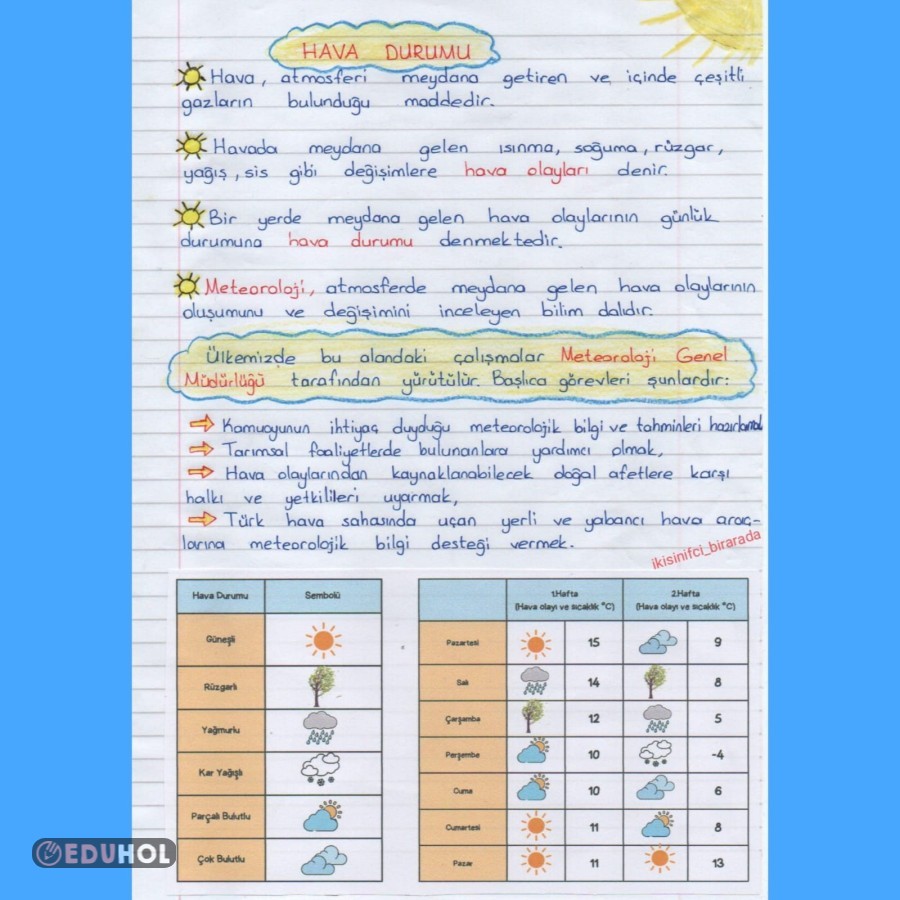 HAVA DURUMU
Hava, atmosferi meydana getiren ve içinde çeşitli
gazların bulunduğu maddedir.
Havada meydana gelen ısınma, soğuma, rüzgar,
yağış, sis gibi değişimlere hava olayları denir.
Bir yerde meydana gelen hava olaylarının günlük
durumuna hava durumu denmektedir.
Meteoroloji, atmosferde meydana gelen hava olaylarının
oluşumunu ve değişimini inceleyen bilim dalıdır.
Ülkemizde bu alandaki çalışmalar Meteoroloji Genel
Müdürlüğü tarafından yürütülür. Başlıca görevleri şunlardır:
Kamuoyunun ihtiyaç duyduğu meteorolojik bilgi ve tahminleri hazırlamak
Tarımsal faaliyetlerde bulunanlara yardımcı olmak,
Hava olaylarından kaynaklanabilecek doğal afetlere karşı
halkı ve yetkilileri uyarmak,
Türk hava sahasında uçan yerli ve yabancı hava araç-
larına meteorolojik bilgi desteği vermek.
ikisinifci_birarada
Hava Durumu Sembolü
Güneşli
Rüzgarlı
Yağmurlu
Kar Yağışlı
Parçalı Bulutlu
Çok Bulutlu
1.Hafta 2.Hafta
(Hava olayı ve sıcaklık °C) (Hava olayı ve sıcaklık °C)
Pazartesi 15 9
Salı 14 8
Çarşamba 12 5
Perşembe 10 -4
Cuma 10 6
Cumartesi 11 8
Pazar 11 13
EDUHOL